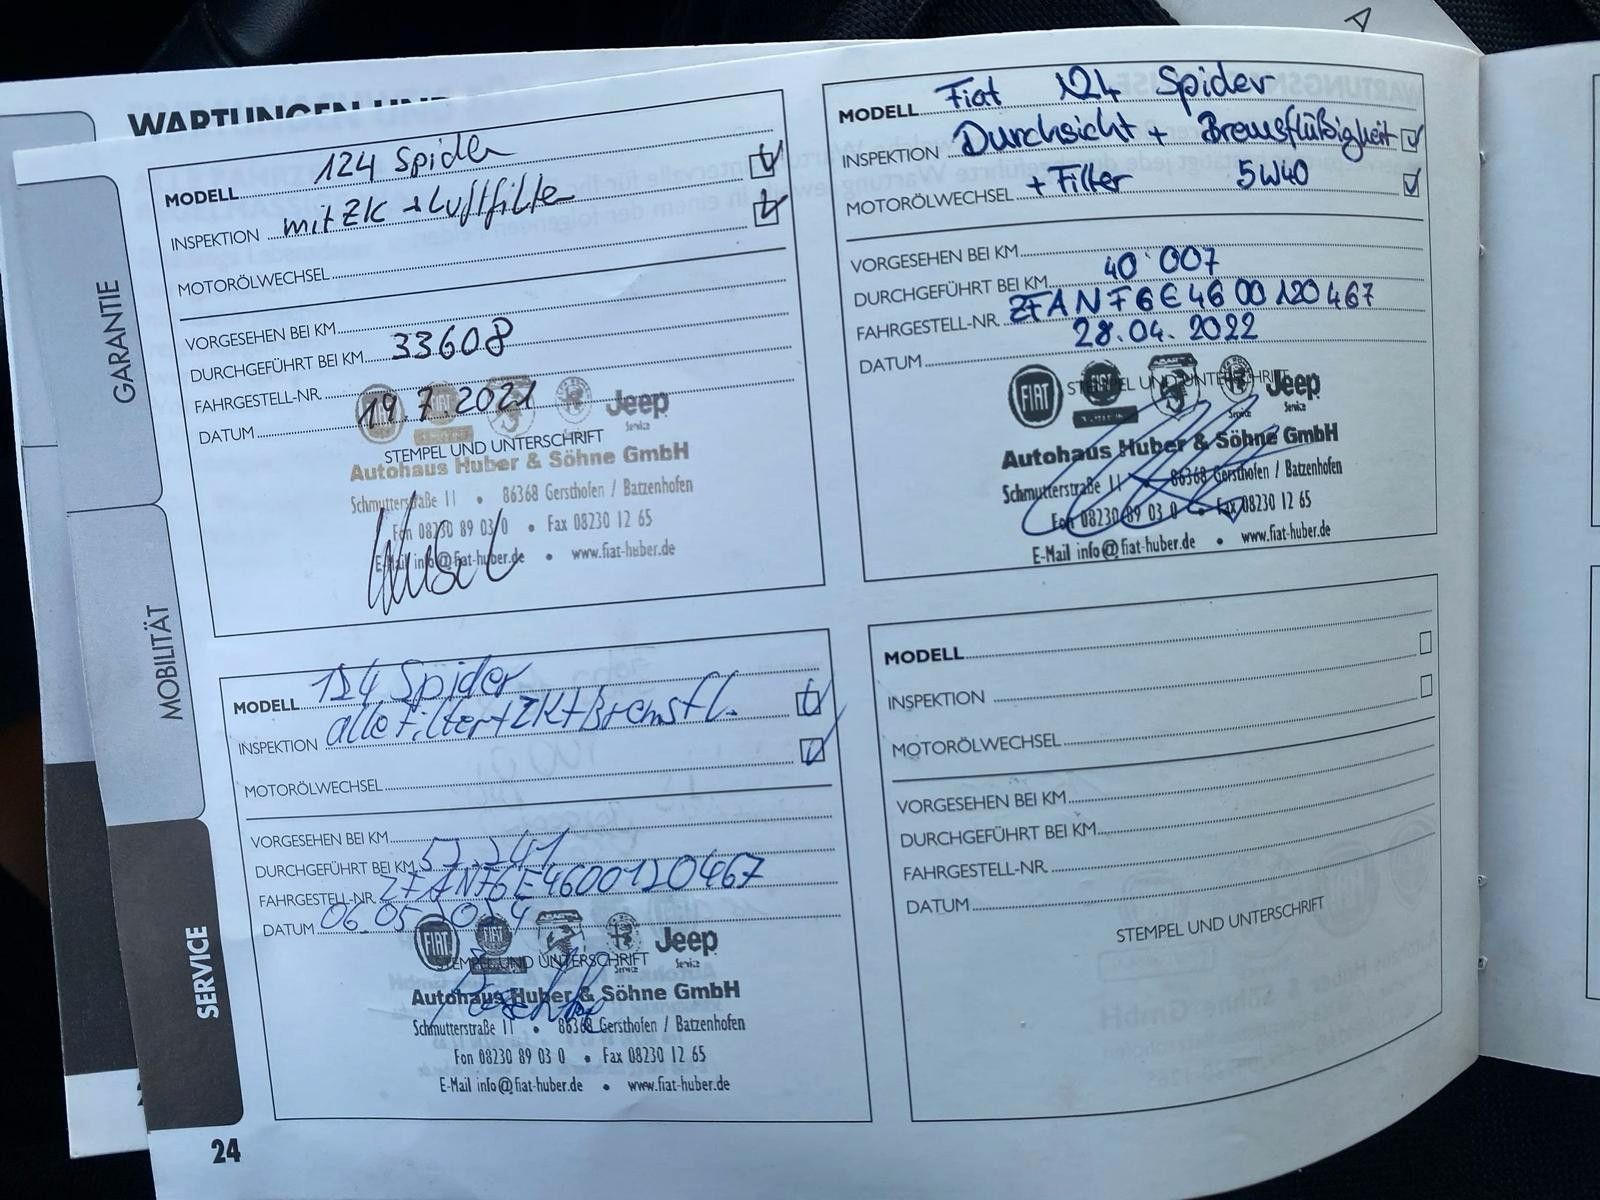 A
WARTUNGEN UND
GARANTIE
MOBILITÄT
SERVICE
MODELL 124 Spider
INSPEKTION mit ZK + Luftfilter
MOTORÖLWECHSEL
VORGESEHEN BEI KM
DURCHGEFÜHRT BEI KM 33608
FAHRGESTELL-NR.
DATUM 19.7.2021
STEMPEL UND UNTERSCHRIFT
FIAT
Jeep
Service
Autohaus Huber & Söhne GmbH
Schmutterstraße 11 • 86368 Gersthofen / Batzenhofen
Fon 08230 89 03 0 • Fax 08230 12 65
E-Mail info@fiat-huber.de • www.fiat-huber.de
MODELL Fiat 124 Spider
INSPEKTION Durchsicht + Bremsflüßigkeit
MOTORÖLWECHSEL + Filter 5W40
VORGESEHEN BEI KM
DURCHGEFÜHRT BEI KM 40'007
FAHRGESTELL-NR. ZFANF6E4600120467
DATUM 28.04.2022
STEMPEL UND UNTERSCHRIFT
FIAT
Service
Jeep
Service
Autohaus Huber & Söhne GmbH
Schmutterstraße 11 • 86368 Gersthofen / Batzenhofen
Fon 08230 89 03 0 • Fax 08230 12 65
E-Mail info@fiat-huber.de • www.fiat-huber.de
MODELL 124 Spider
INSPEKTION alle Filter + ZK + Bremsfl.
MOTORÖLWECHSEL
VORGESEHEN BEI KM
DURCHGEFÜHRT BEI KM 52.241
FAHRGESTELL-NR. ZFANF6E4600120467
DATUM 06.05.
STEMPEL UND UNTERSCHRIFT
FIAT
Service
Jeep
Service
Autohaus Huber & Söhne GmbH
Schmutterstraße 11 • 86368 Gersthofen / Batzenhofen
Fon 08230 89 03 0 • Fax 08230 12 65
E-Mail info@fiat-huber.de • www.fiat-huber.de
MODELL
INSPEKTION
MOTORÖLWECHSEL
VORGESEHEN BEI KM
DURCHGEFÜHRT BEI KM
FAHRGESTELL-NR.
DATUM
STEMPEL UND UNTERSCHRIFT
24